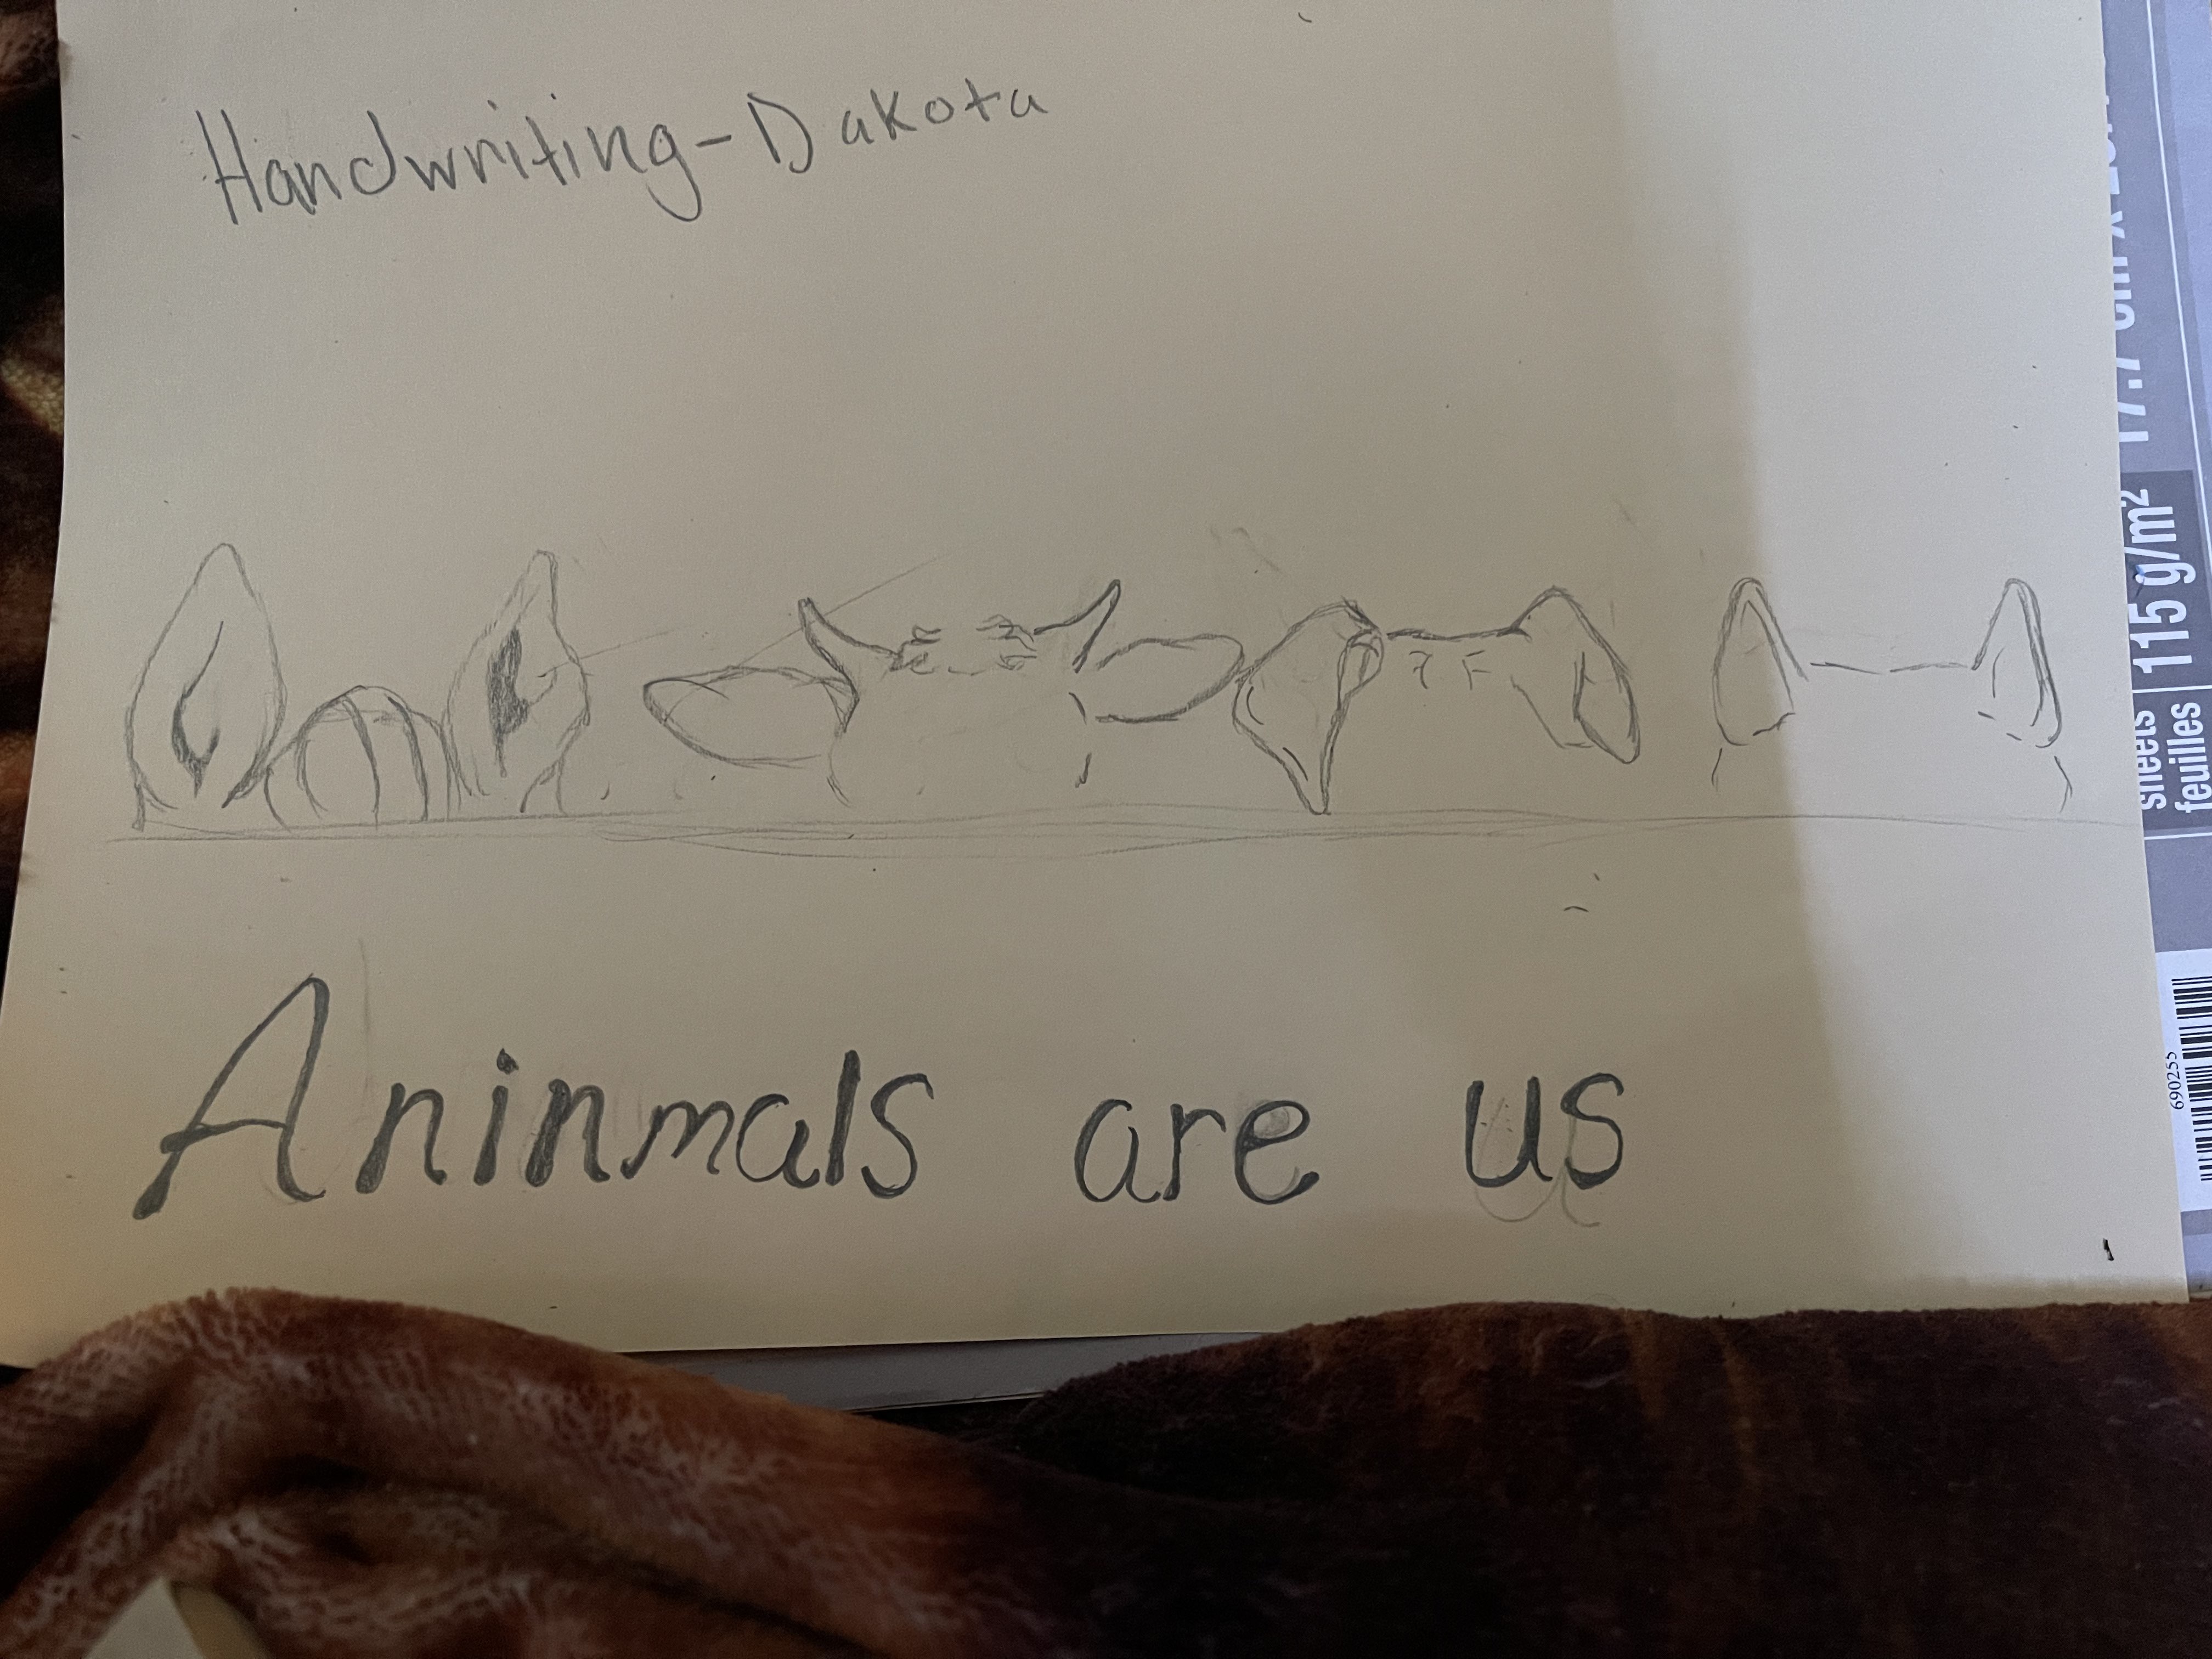 Handwriting-Dakota
Aninmals are us
sheets
feuilles
115 g/m²
690255